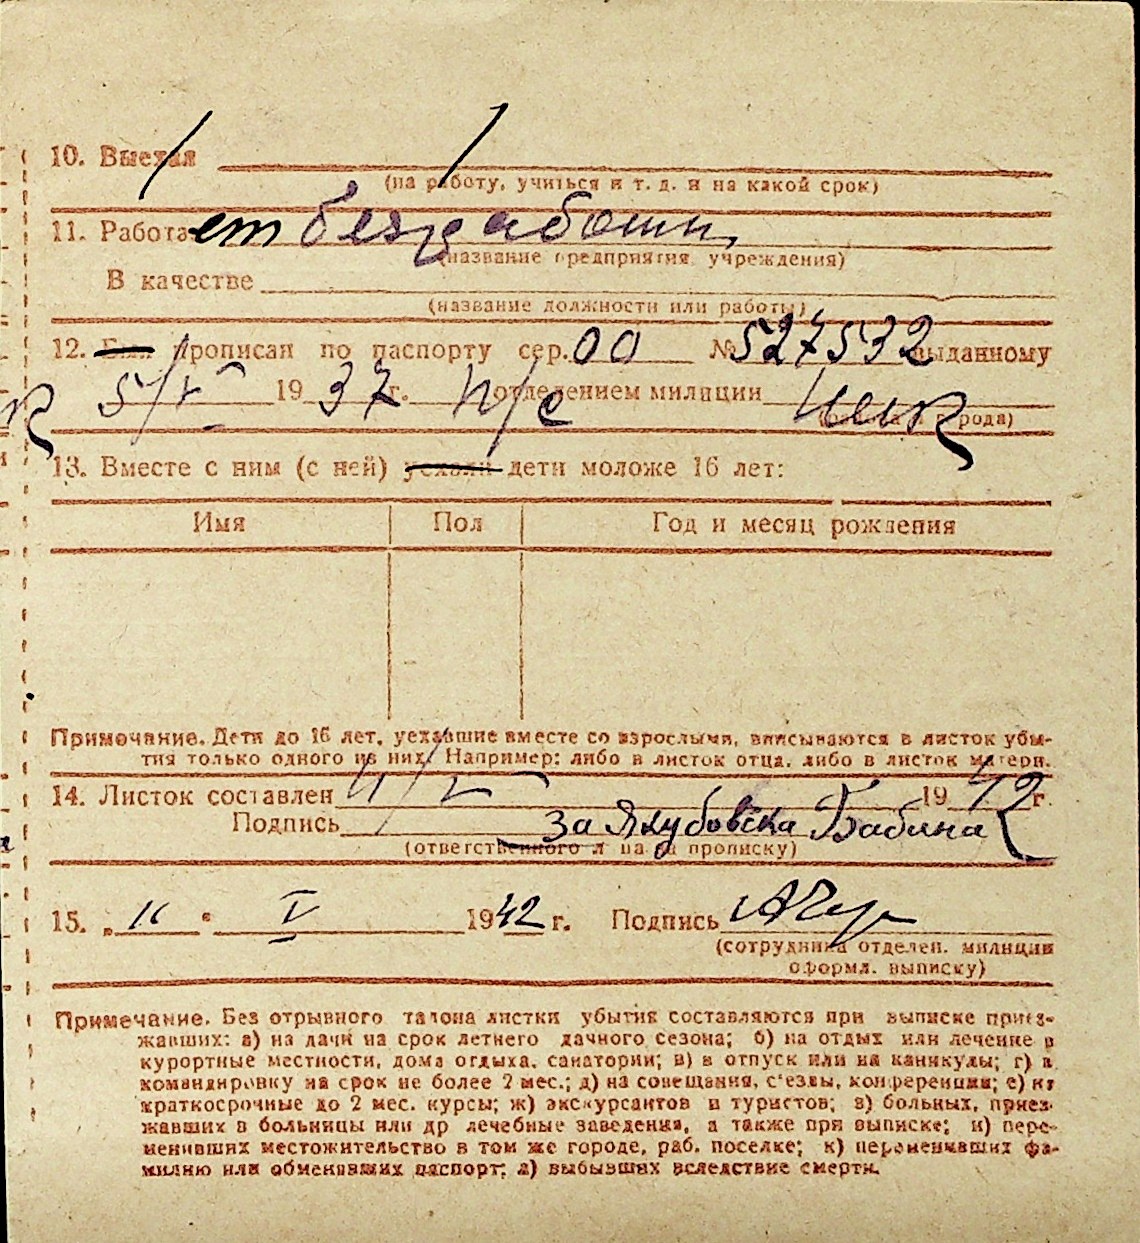 10. Выехал
(на работу, учиться и т. д. и на какой срок)
11. Работает без работы,
(название предприятия учреждения)
В качестве
(название должности или работы)
12. Был прописан по паспорту сер. 00 № 527532 выданному
5/V 1937 г. отделением милиции
13. Вместе с ним (с ней) уехали дети моложе 16 лет:
Имя Пол Год и месяц рождения
Примечание. Дети до 16 лет, уехавшие вместе со взрослыми, вписываются в листок убы-
тия только одного из них. Например: либо в листок отца, либо в листок матери.
14. Листок составлен 11/V 1942 г.
Подпись За Якубовска Бабина
(ответственного л ца за прописку)
15. „ 11 “ V 1942 г. Подпись
(сотрудника отделен. милиции
оформл. выписку)
Примечание. Без отрывного талона листки убытия составляются при выписке приез-
жавших: а) на дачи на срок летнего дачного сезона; б) на отдых или лечение в
курортные местности, дома отдыха, санатории; в) в отпуск или на каникулы; г) в
командировку на срок не более 2 мес.; д) на совещания, с'езды, конференции; е) на
краткосрочные до 2 мес. курсы; ж) экскурсантов и туристов; з) больных, приез-
жавших в больницы или др лечебные заведения, а также при выписке; и) пере-
менивших местожительство в том же городе, раб. поселке; к) переменивших фа-
милию или обменявших паспорт; л) выбывших вследствие смерти.